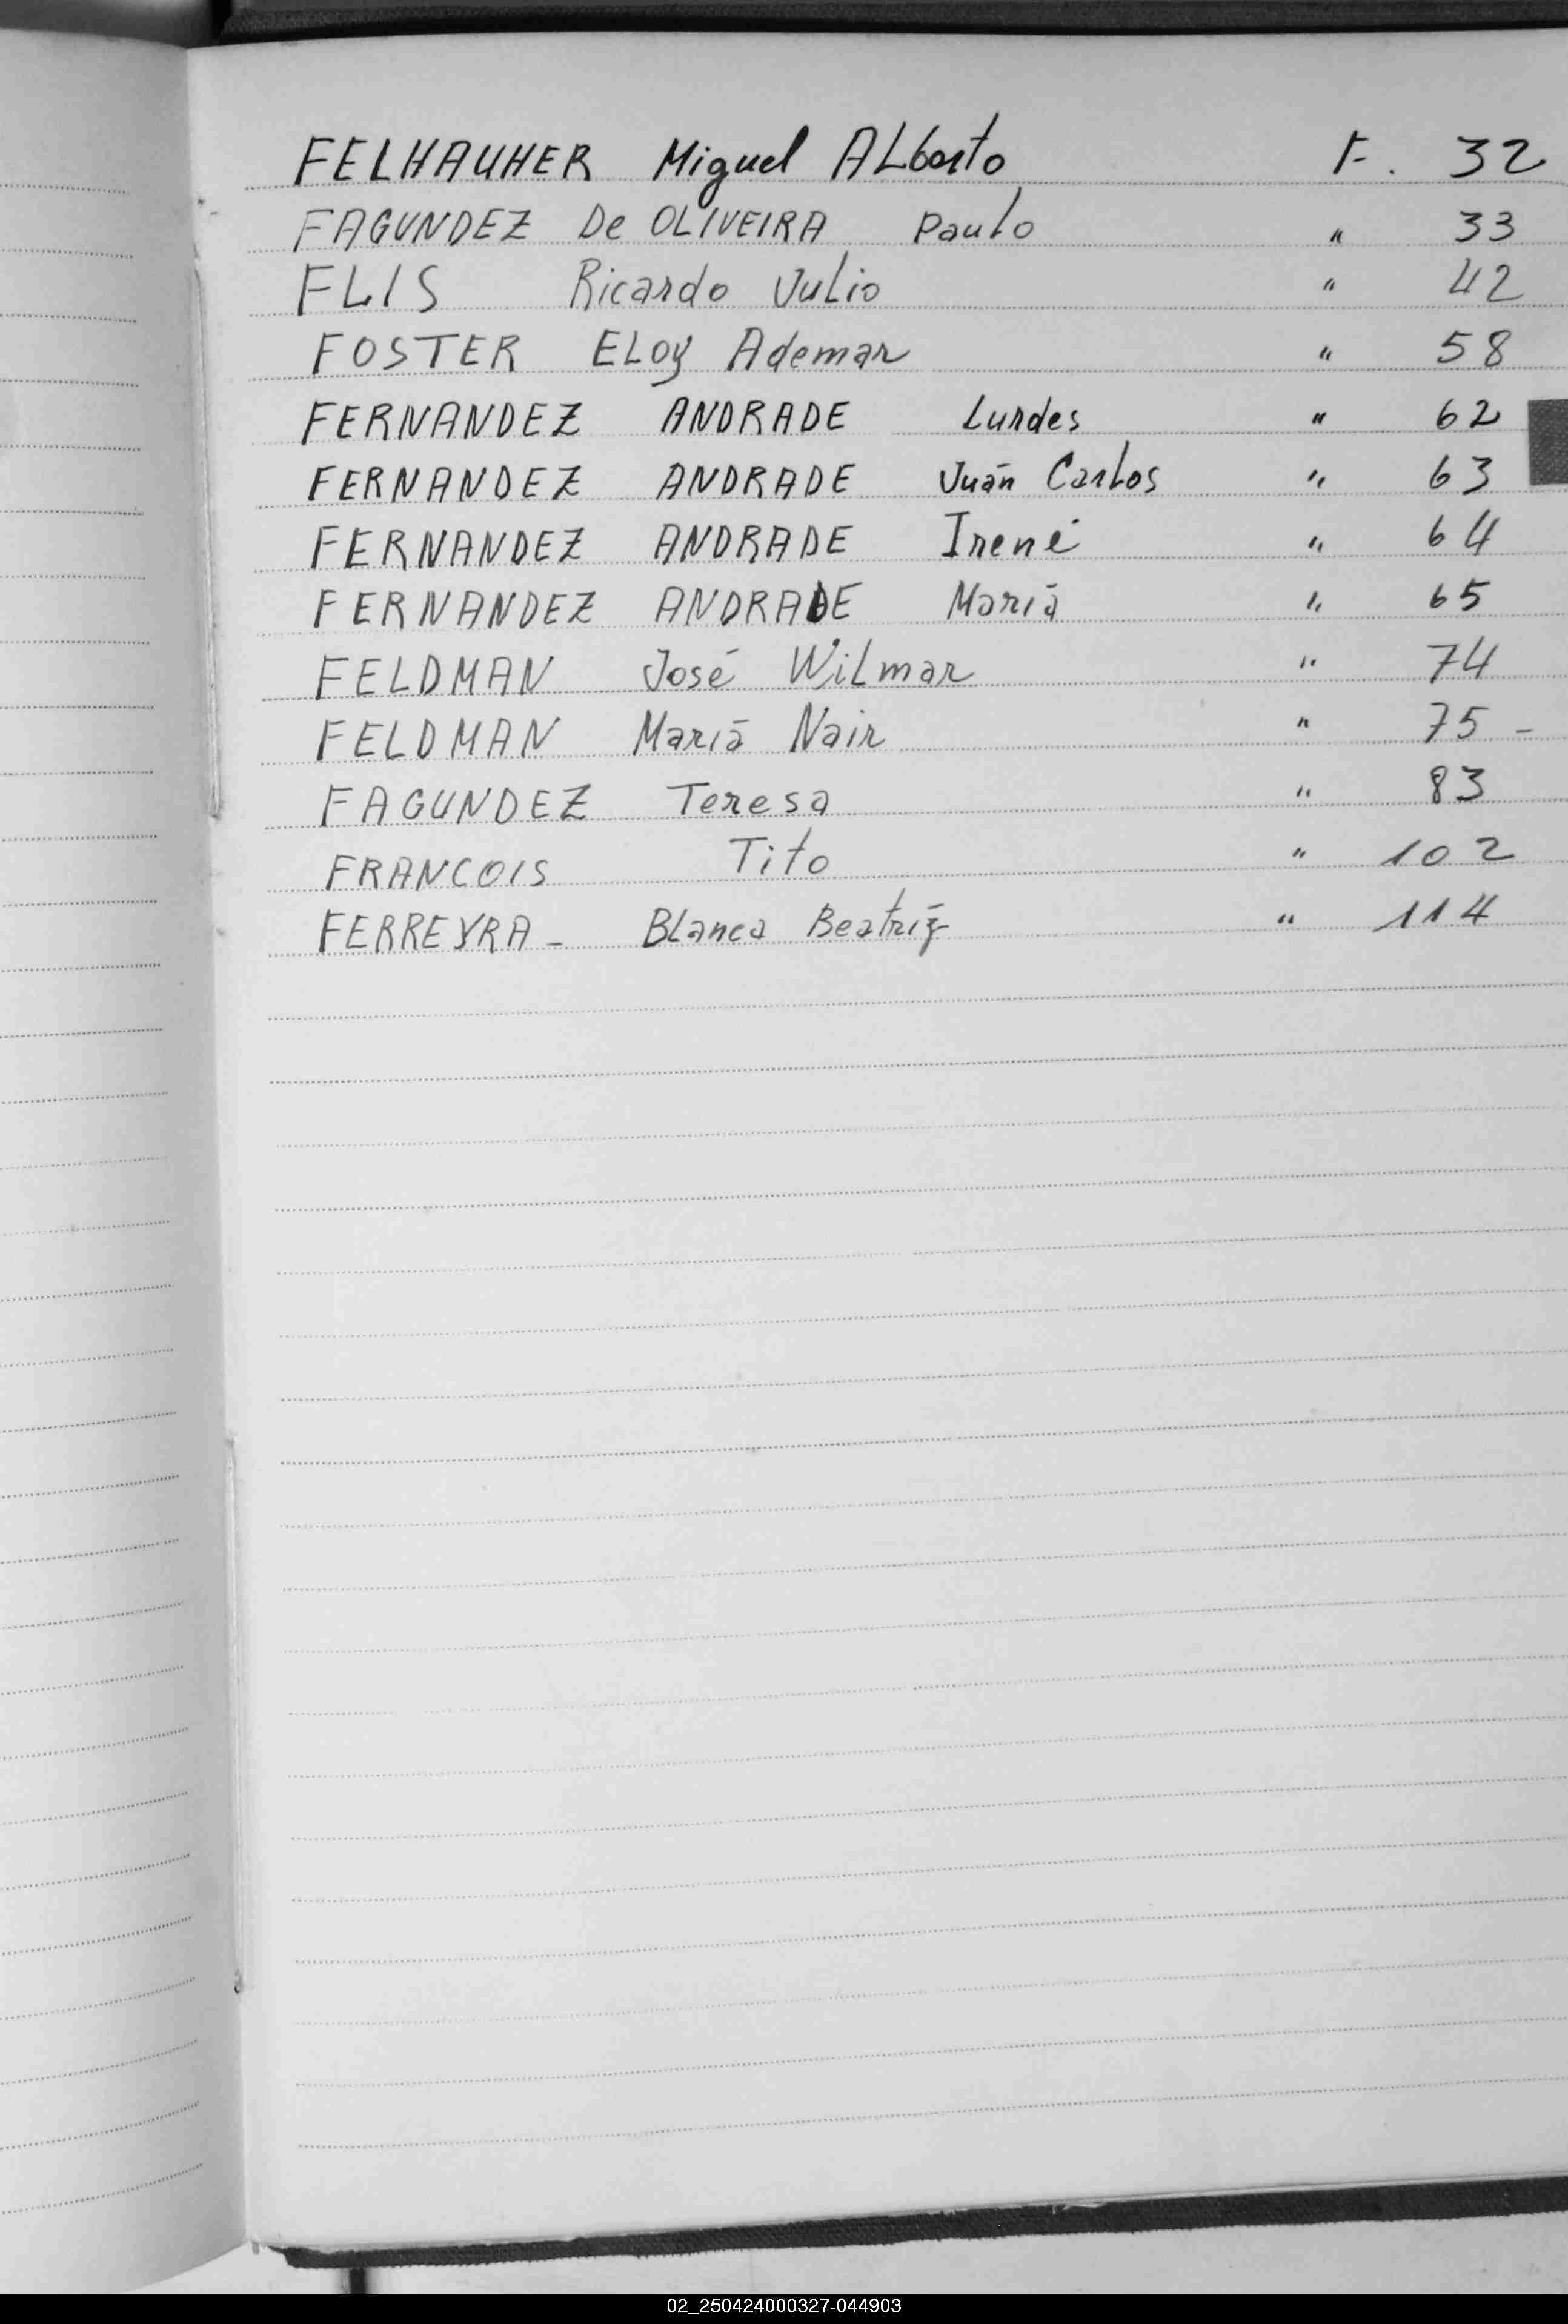 FELHAUHER Miguel ALberto F. 32
FAGUNDEZ De OLIVEIRA Paulo " 33
FLIS Ricardo Julio " 42
FOSTER ELoy Ademar " 58
FERNANDEZ ANDRADE Lurdes " 62
FERNANDEZ ANDRADE Juán CarLos " 63
FERNANDEZ ANDRADE Irené " 64
FERNANDEZ ANDRADE Mariá " 65
FELDMAN José WiLmar " 74
FELDMAN Mariá Nair " 75 -
FAGUNDEZ Teresa " 83
FRANCOIS Tito " 102
FERREYRA - BLanca Beatriz " 114
02_250424000327-044903